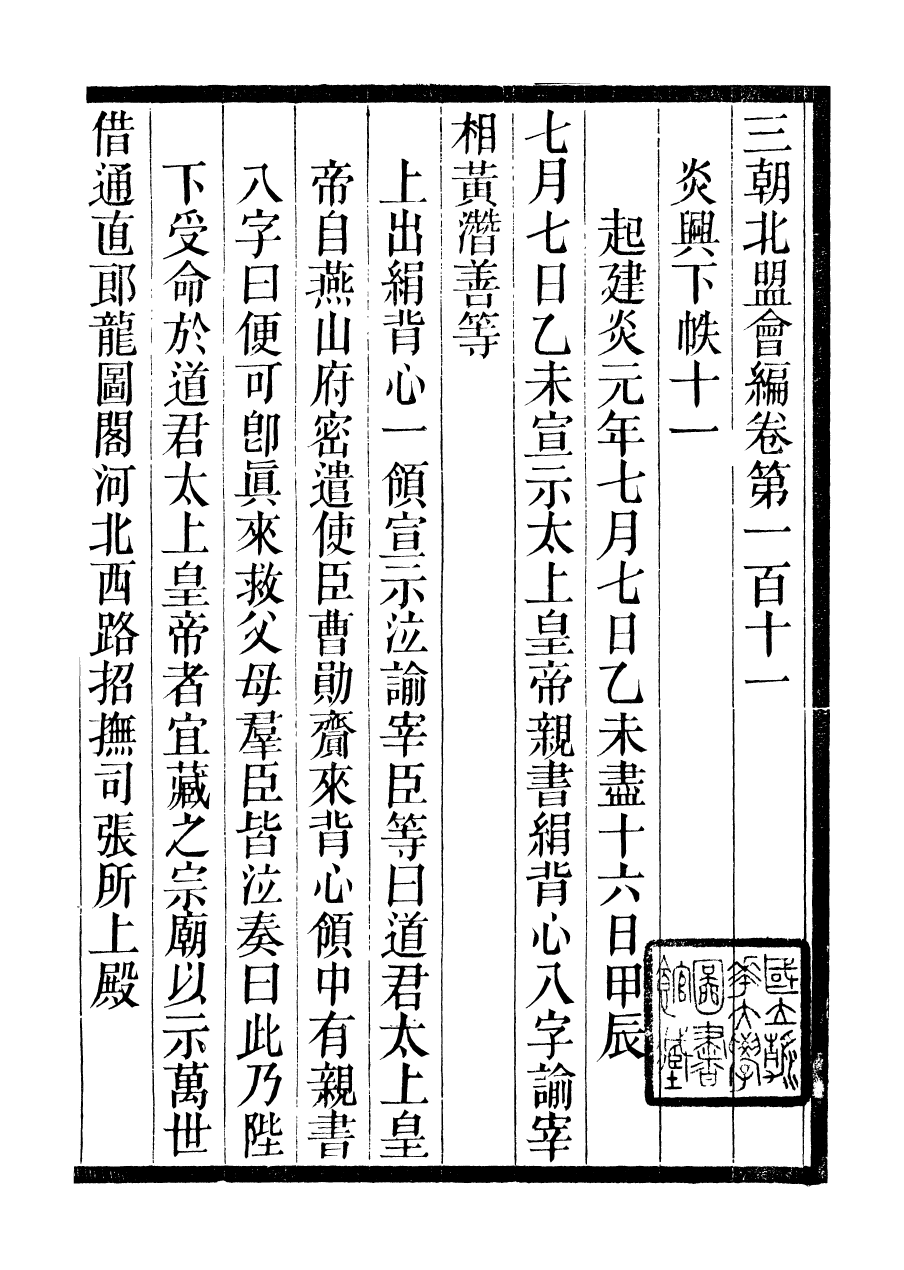 三朝北盟會編卷第一百十一
炎興下帙十一
起建炎元年七月七日乙未盡十六日甲辰
七月七日乙未宣示太上皇帝親書絹背心八字諭宰
相黃潛善等
上出絹背心一領宣示泣諭宰臣等曰道君太上皇
帝自燕山府密遣使臣曹勛齎來背心領中有親書
八字曰便可卽眞來救父母羣臣皆泣奏曰此乃陛
下受命於道君太上皇帝者宜藏之宗廟以示萬世
借通直郎龍圖閣河北西路招撫司張所上殿
國立
大學
圖書
館藏